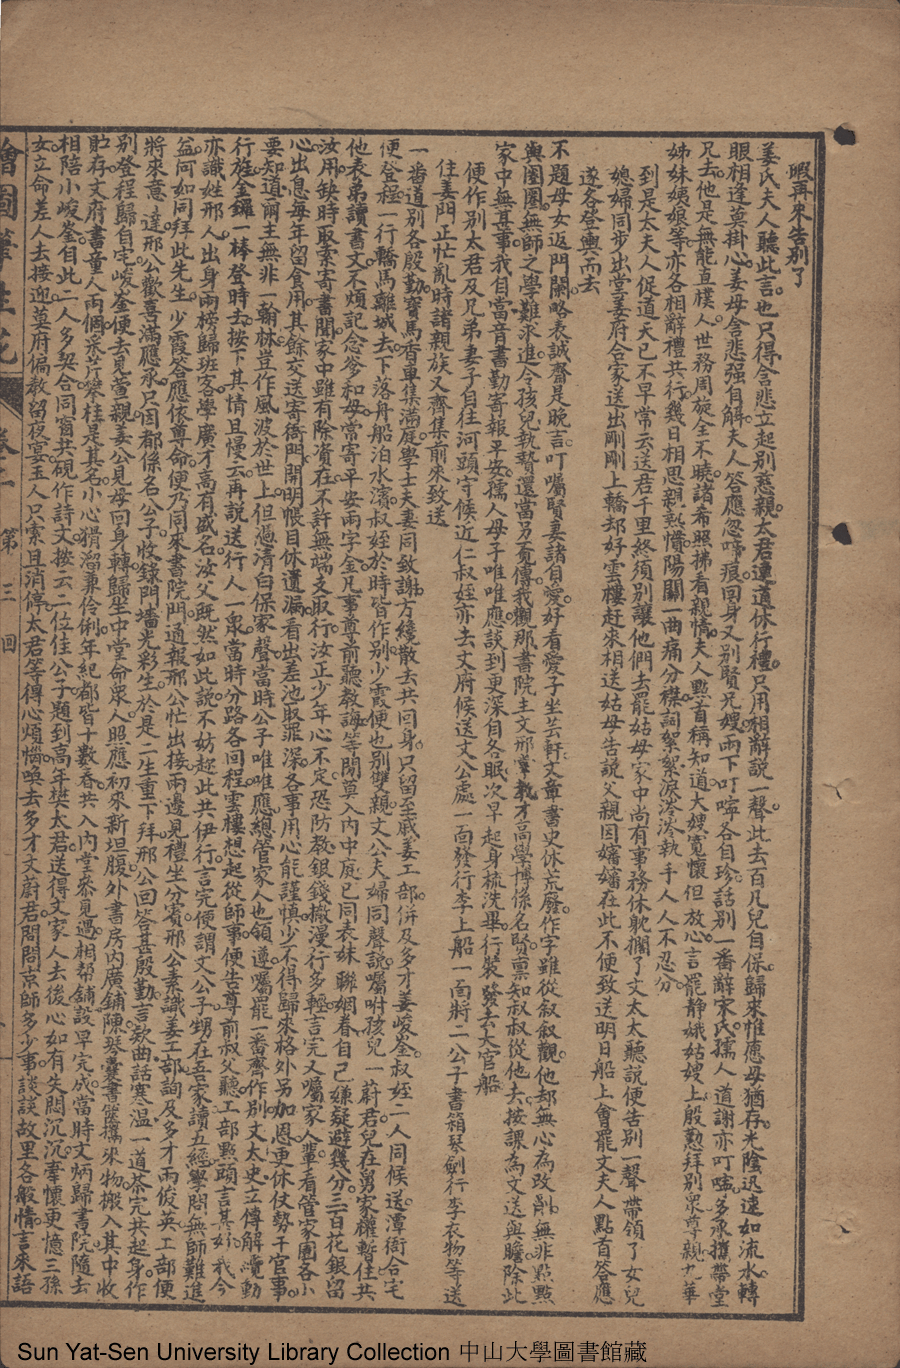 暇再來告別了
姜氏夫人聽此言也只得含悲立起別慈親太君連道休行禮只用相辭說一聲此去百凡兒自保歸來惟應母猶存光陰迅速如流水轉
眼相逢莫掛心姜母含悲强自解夫人答應忽啼痕回身又別賢兄嫂兩下叮嚀各自珍話別一番辭宋氏孺人道謝亦叮嚀多承攜帶堂
兄去他是無能直樸人世務周旋全不曉諸希照拂看親情夫人點首稱知道大嫂寬懷但放心言罷靜娥姑嫂上殷懃拜別衆尊親九華
姊妹姨娘等亦各相辭禮共行幾日相思親熱慣陽關一曲痛分襟詞絮絮淚涔涔執手人人不忍分
到是太夫人促道天已不早常云送君千里終須別讓他們去罷姑母家中尚有事務休躭擱了文太太聽說便告別一聲帶領了女兒
媳婦同步出堂姜府合家送出剛剛上轎却好雲樓赶來相送姑母告說父親因嬸嬸在此不便致送明日船上會罷文夫人點首答應
遂各登輿而去
不題母女返門闌略表誠齋是晚言叮囑賢妻諸自愛好看愛子坐芸軒文章書史休荒廢作字雖從叔叔觀他却無心為改削無非點點
與圈圈無師之學難求進令孩兒執贄還當另有傳我觀那書院主文邢掌教才高學博係名賢禀知叔叔從他去按課為文送與瞻除此
家中無甚事我自當音書勤寄報平安孺人母子唯唯應談到更深自各眠次早起身梳洗畢行裝發去大官船
便作別太君及兄弟妻子自往河頭守候近仁叔姪亦去文府候送文公處一面發行李上船一面將二公子書箱琴劍行李衣物等送
住姜門正忙亂時諸親族又齊集前來致送
一番道別各殷勤寶馬香車集滿庭學士夫妻同致謝方纔散去共回身只留至戚姜工部併及多才姜峻叅叔姪二人同候送潭衙合宅
便登程一行轎馬離城去下落舟船泊水濱叔姪於時皆作別少霞便也別雙親文公夫婦同聲說囑咐孩兒一蔚君兒在舅家權暫住共
他表弟讀書文不煩記念爹和母常寄平安兩字金凡事尊前聽教誨等閒莫入內中庭已同表妹聯姻眷自己嫌疑避幾分三百花銀留
汝用缺時取索寄書聞家中雖有除資在不許無端支取行汝正少年心不定恐防教銀錢撒漫行多輕言完又囑家人輩看管家園各小
心出息每年留食用其餘交送寄衙門開明帳目休遺漏看出差池取罪深各事用心能謹慎少不得歸來格外另加恩更休仗勢干官事
要知道爾主無非一翰林豈作風波於世上但憑清白保家聲當時公子唯唯應總管家人也領遵囑罷一番齊作別文太史立傳解纜動
行旌金鑼一棒登時去按下其情且慢云再說送行人一衆當時分路各回程雲樓想起從師事便告尊前叔父聽工部點頭言甚好我今
亦識姓邢人出身兩榜歸班客學廣才高有盛名汝父既然如此說不妨趁此共伊行言完便謂文公子甥在吾家讀五經學問無師難進
益何如同拜此先生少霞答應依尊命便乃同來書院門通報邢公忙出接兩邊見禮坐分賓邢公素識姜工部詢及多才兩俊英工部便
將來意一達邢公歡喜滿應承只因都係名公子收錄門墻光彩生於是二生重下拜邢公回答甚殷勤言欵曲話寒温一道茶完共起身作
別登程歸自宅峻叅便去見萱親姜公見母回身轉歸坐中堂命衆人照應初來新坦腹外書房內廣鋪陳琴囊書篋攜來物搬入其中收
貯存文府書童人兩個采芹攀桂是其名小心猾溜兼伶俐年紀都皆十數春共入內堂叅見過相幫鋪設早完成當時文炳歸書院隨去
相陪小峻叅自此二人多契合同窗共硯作詩文按云二位住公子題到高年樊太君送得文家人去後心如有失悶沉沉牽懷更憶三孫
女立命差人去接迎莫府偏教留夜宴玉人只索且消停太君等得心煩惱喚去多才文蔚君問問京師多少事談談故里各般情言來語
繪圖筆生花 卷二 第三回
Sun Yat-Sen University Library Collection 中山大學圖書館藏